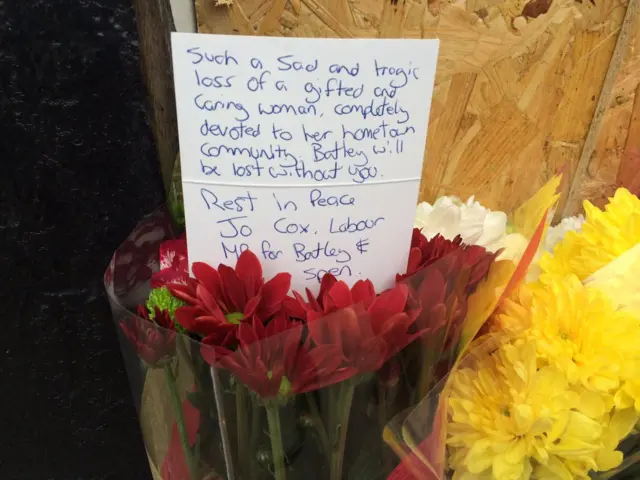 Such a Sad and tragic
loss of a gifted and
Caring woman, completely
devoted to her hometown
community. Batley will
be lost without you.
Rest in Peace
Jo Cox. Labour
MP for Batley &
Spen.